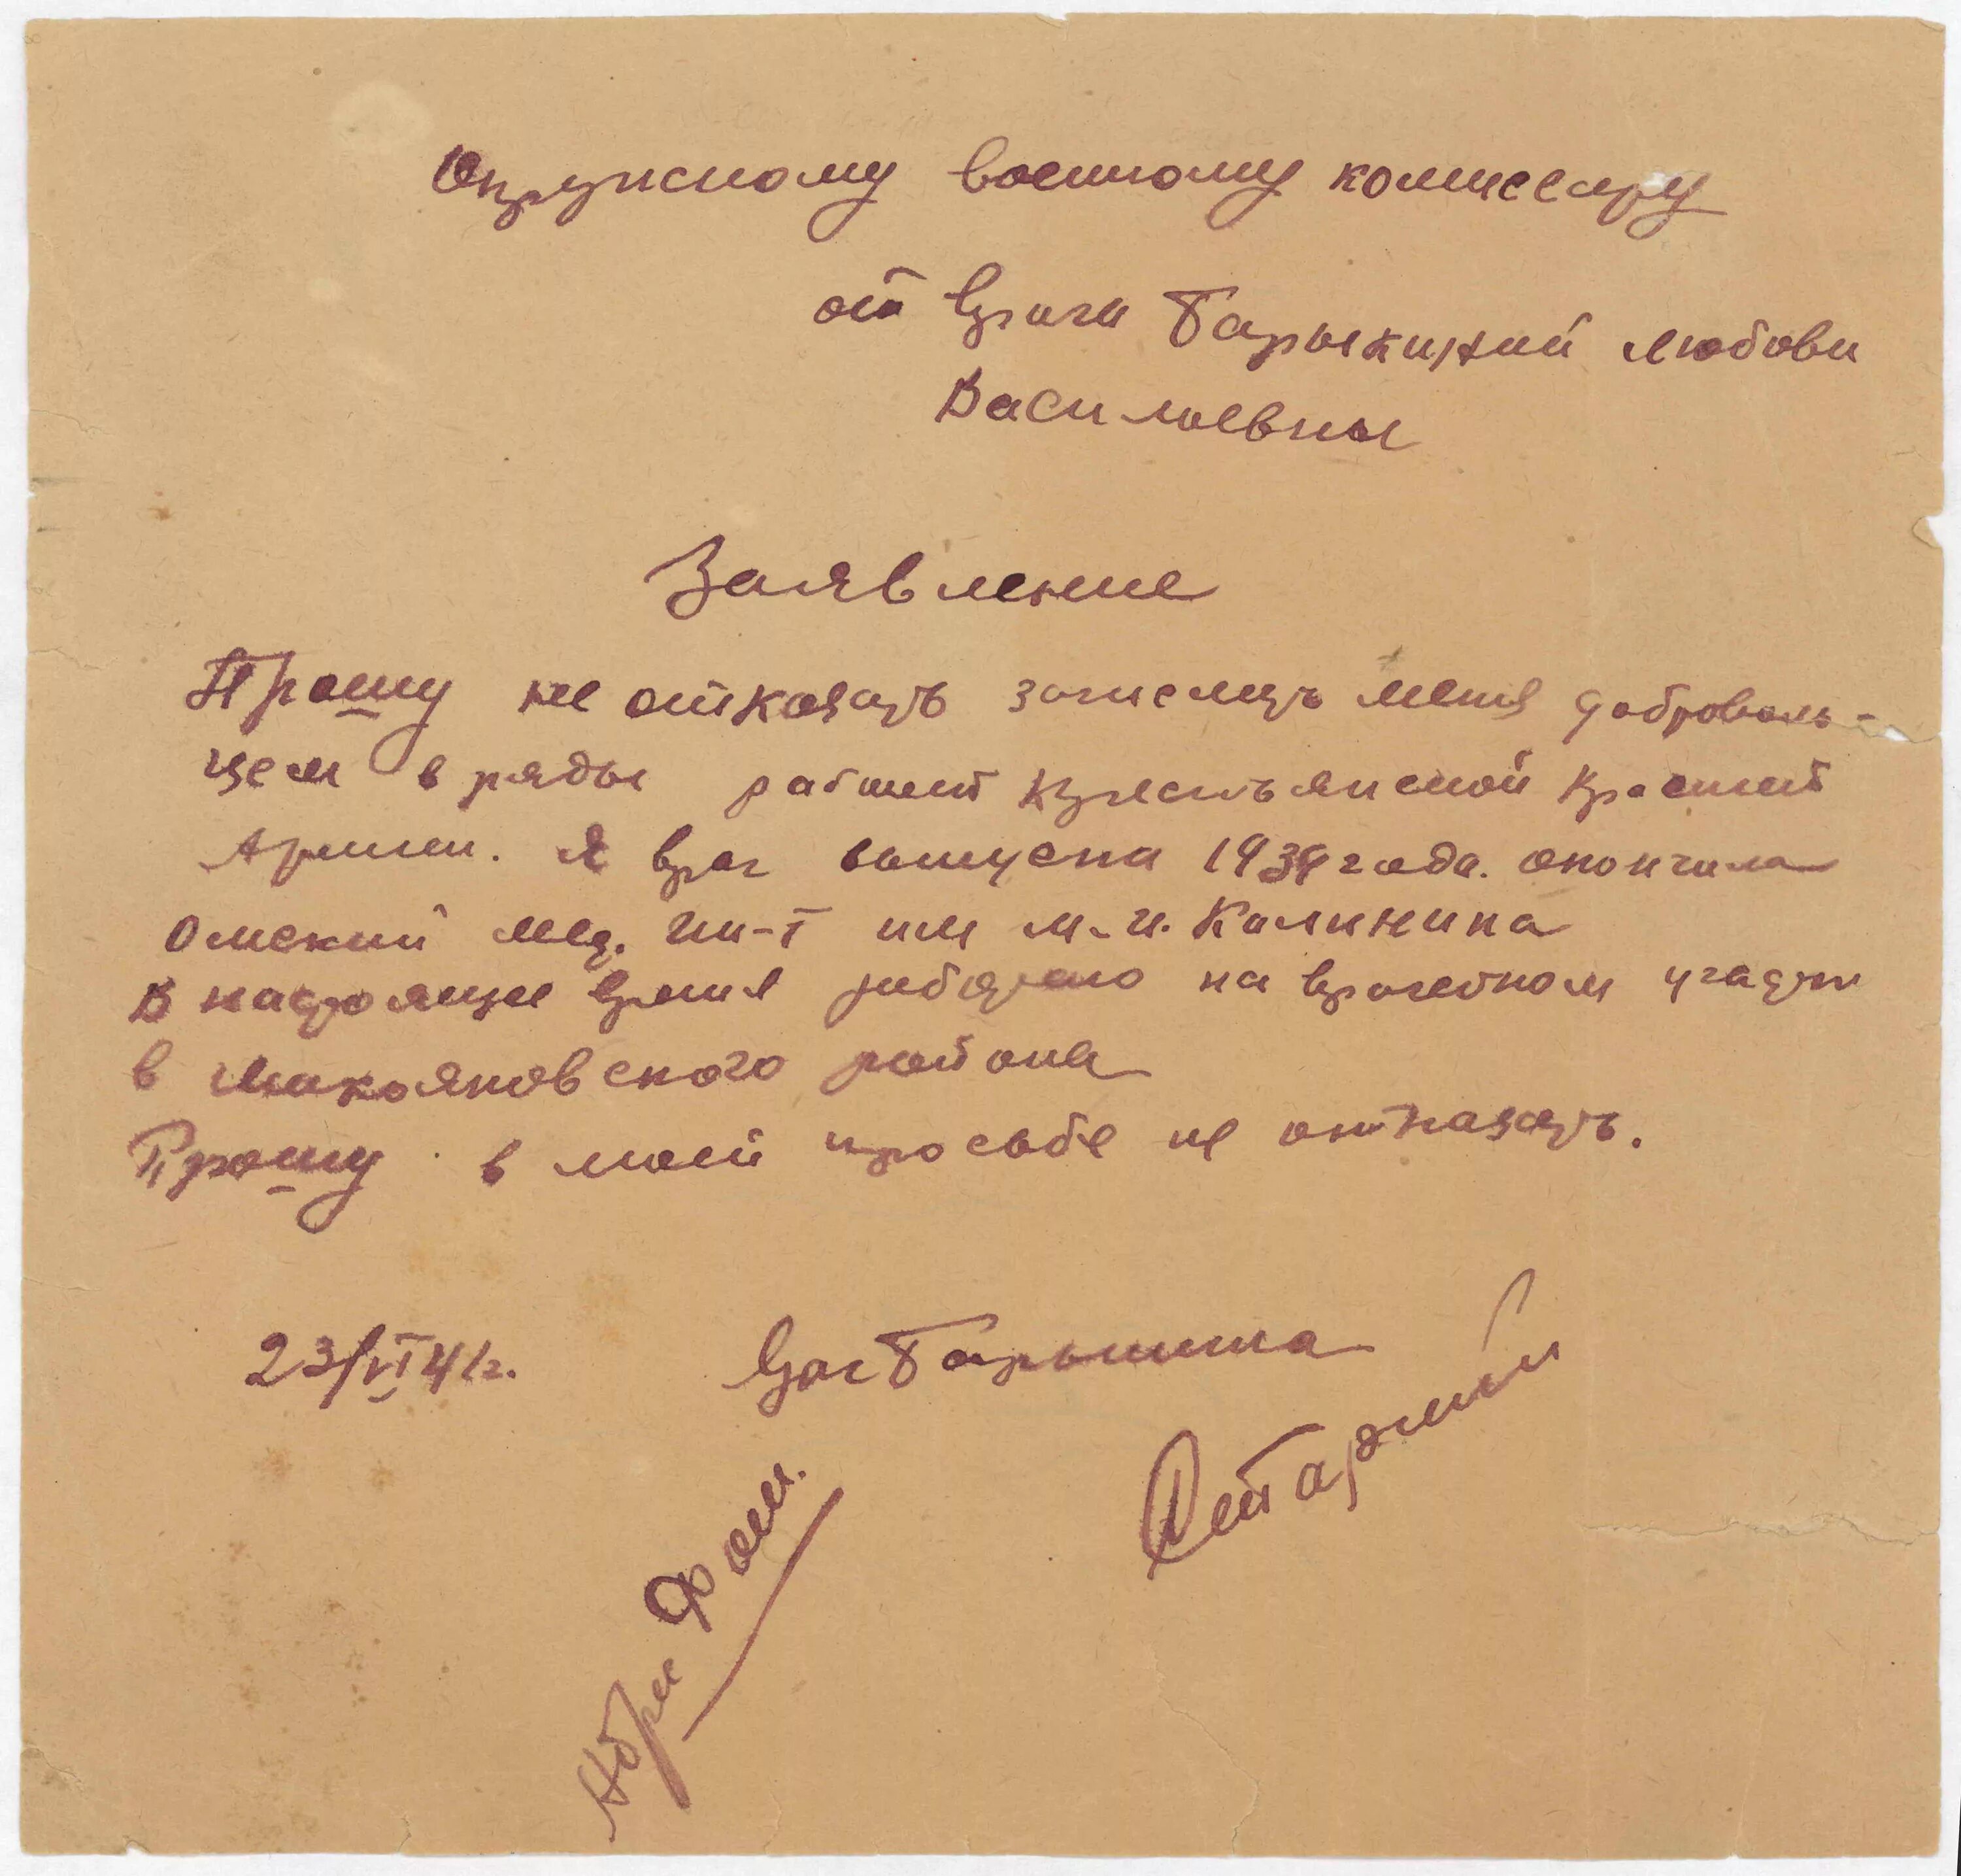 Окружному военному комиссару
от врача Барыкиной Любови
Васильевны
Заявление
Прошу не отказать зачислить меня доброволь-
цем в ряды рабочей крестьянской красной
Армии. Я врач выпуска 1939 года. окончила
Омский мед. ин-т им М. И. Калинина
В настоящее время работаю на врачебном участке
в Микояновского района
Прошу в моей просьбе не отказать.
23/VI 41г.
Врач Барыкина